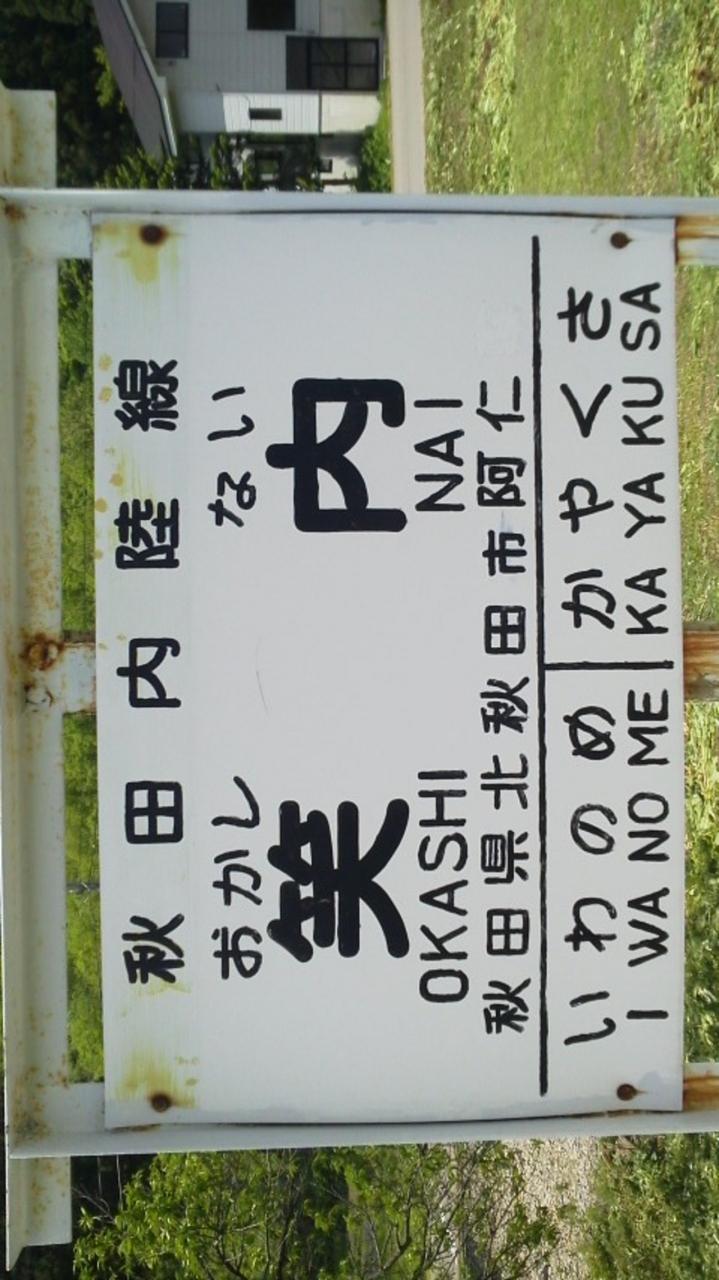 秋田内陸線
おかし ない
笑内
OKASHI NAI
秋田県北秋田市阿仁
いわのめ かやくさ
I WA NO ME KA YA KU SA